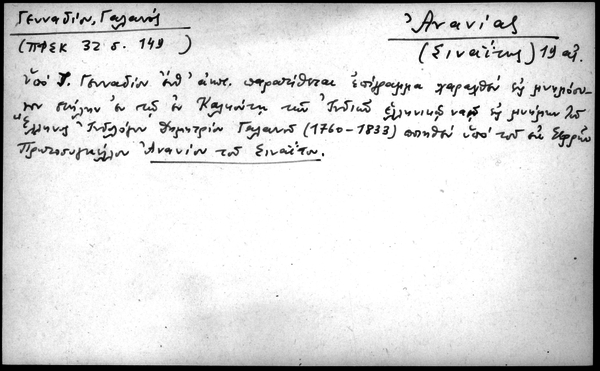 Γενναδίου, Γαλανός
(ΠΦΣΚ 32 σ. 149)
Ἀνανίας
(Σιναΐτης) 19 αἰ.
Ὑπὸ Γ. Γενναδίου ἔνθ' ἀνωτ. παρατίθεται ἐπίγραμμα χαραχθὲν εἰς μνημόσυ-
νον στήλην ἐν τῷ ἐν Καλκούτῃ τῆς Ἰνδικῆς ἑλληνικῷ ναῷ εἰς μνήμην τοῦ
Ἕλληνος Ἰνδολόγου Δημητρίου Γαλανοῦ (1760-1833) ὑπὸ τοῦ ἐκ
Πρωτοσυγκέλλου Ἀνανίου τοῦ Σιναΐτου.